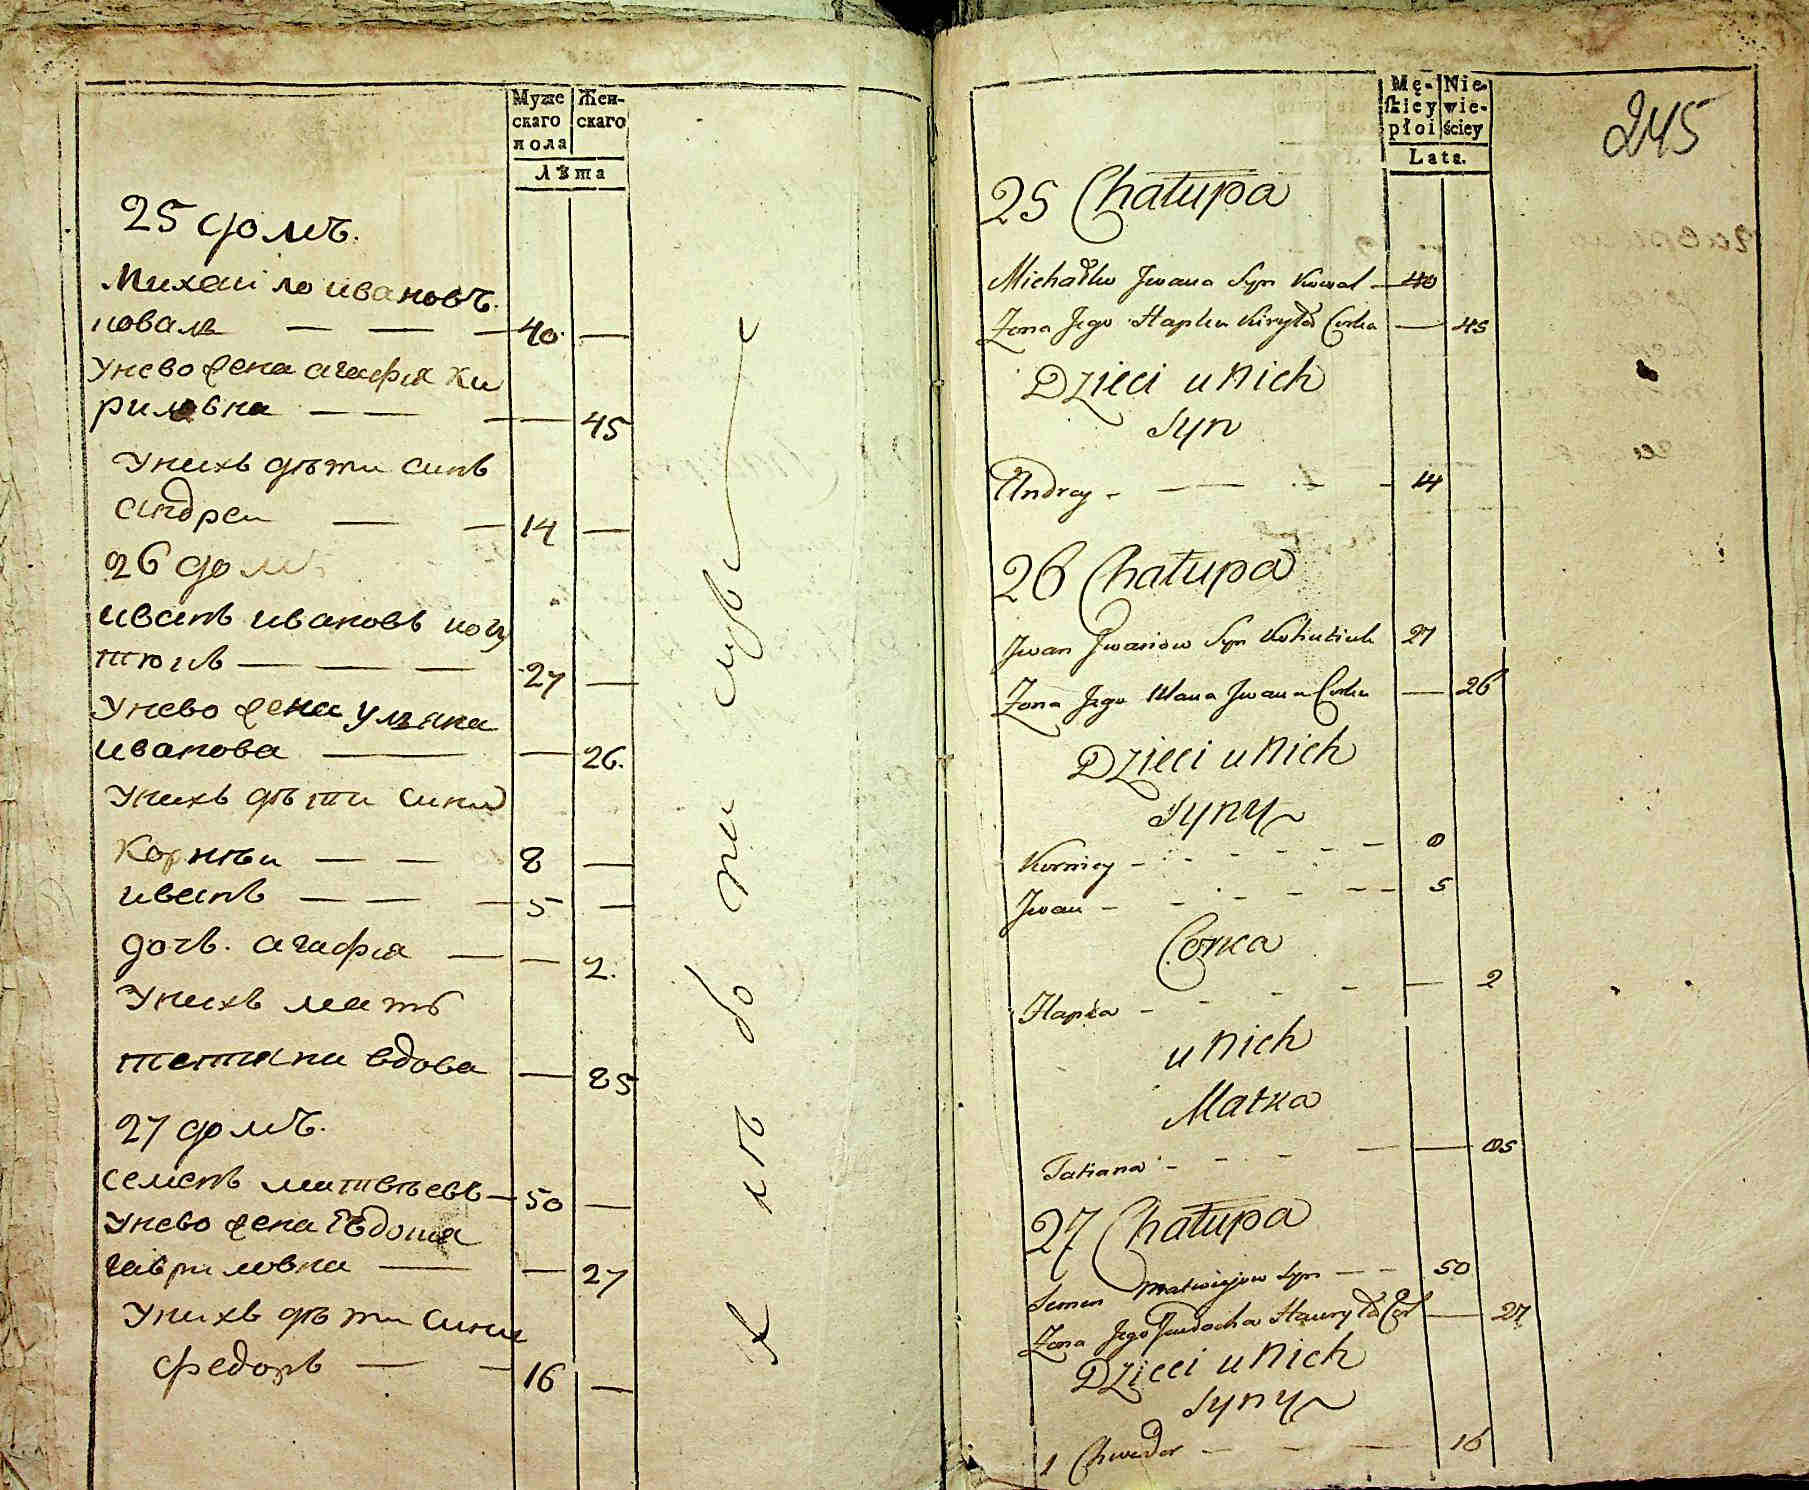 Муже
скаго
пола
Жен-
скаго
Лѣта
25 домъ.
Михаило ивановъ.
коваль — — — 40. —
Унево жена агафия ки
риловна — — — 45
Унихъ дѣти синъ
андреи — — 14 —
26 домъ
иванъ ивановъ
— — — 27 —
Унево жена уляна
иванова — — 26.
Унихъ дѣти сини
Корнѣи — — 8 —
иванъ — — — 5 —
дочь. агафия — — 2.
Унихъ мать
тетяна вдова — 85
27 домъ.
семенъ матвѣевъ — 50 —
Унево жена Евдокия
гавриловна — — 27
Унихъ дѣти сини
федоръ — — 16 —
Mę-
skiey
płoi
Nie-
wie-
ściey
Lata.
245
25 Chałupa
Michałko Jwana Syn Kowal — 40
Zona Jego Hapka Kiryła Corka — 45
Dzieci u Nich
Syn
Andrey - — — - - 14
26 Chałupa
Jwan Jwanow Syn 27
Zona Jego Ulana Jwana Corka — 26
Dzieci u Nich
Syny
Korniey - - - - - - 8
Jwan - - - - - - 5
Corka
Hapka - - - - — 2
u Nich
Matka
Tatiana - - - — — 85
27 Chałupa
Semen Matwiejow Syn — — 50
Zona Jego Jewdocha Hawryła Cor — 27
Dzieci u Nich
Syny
1 Chwedor — — — 16